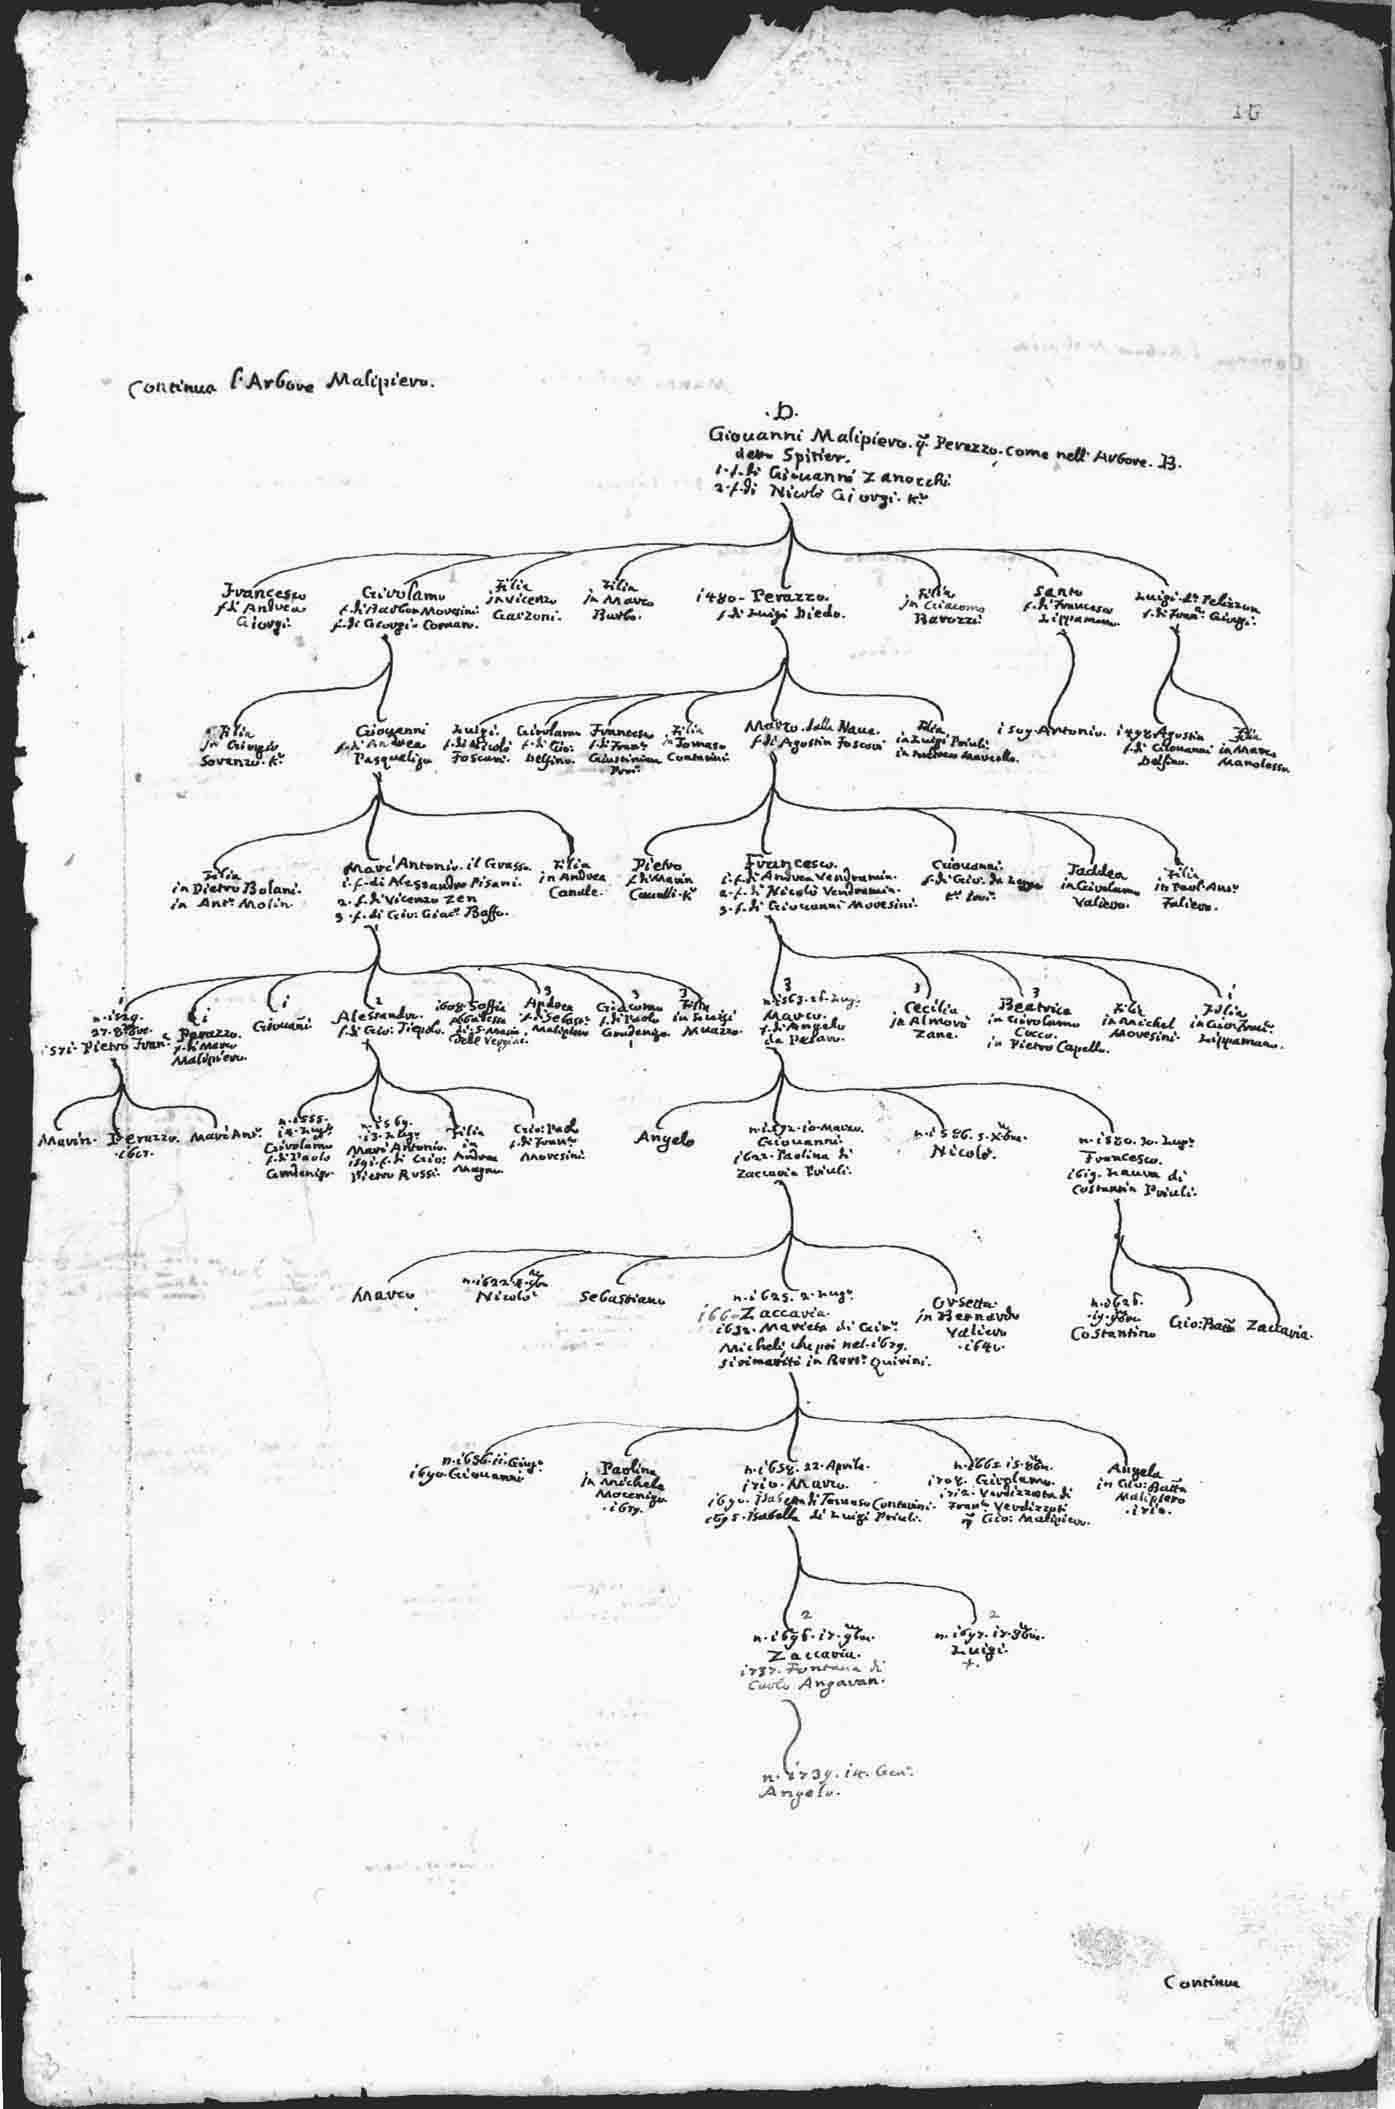 Continua l'Arbore Malipiero.
.D.
Giouanni Malipiero. q. Perazzo. come nell'Arbore. B.
detto Spitier.
1. f. di Giouanni Zanocchi
2. f. di Nicolò Giorgi. Kr
Francesco
f. di Andrea
Giorgi.
Girolamo
f. di Barbon Moresini
f. di Giorgio Cornaro.
Filia
in Vicenzo
Garzoni.
Filia
in Marco
Barbo.
1480. Perazzo.
f. di Luigi Diedo.
Filia
in Giacomo
Barozzi
Santo
f. di Francesco
Lippamano
Luigi. do Pelizzon
f. di Franco Giorgi.
Filia
in Giorgio
Soranzo. Kr
Giouanni
f. di Andrea
Pasqualigo
Luigi.
f. di Nicolò
Foscari.
Girolamo
f. di Gio:
Delfino.
Francesco
f. di Franco
Giustinian
Filia
in Tomaso
Contarini
Marco. dalla Naue.
f. di Agostin Foscari
Filia
in Luigi Priuli
in Marcello.
1509. Antonio.
1498. Agostin
f. di Giouanni
Delfino.
Filia
in Marco
Manolesso
Filia
in Pietro Bolani.
in Anto Molin.
Marc'Antonio. il Grasso.
1. f. di Alessandro Pisani.
2. f. di Vicenzo Zen
3. f. di Gio: Giaco Baffo.
Filia
in Andrea
Canale.
Pietro
f. di Marin
Caualli. Kr
Francesco.
1. f. di Andrea Vendramin.
2. f. di Nicolò Vendramin.
3. f. di Giouanni Moresini.
Giouanni.
f. di Gio. da Lezze
Taddea
in Girolamo
Valiero.
Filia
in Paol Anto
Faliero.
1
n. 1529.
27. 8bre.
1571. Pietro Franco
1
Perazzo.
f. di Marco
Malipiero.
1
Giouani
2
Alessandro.
f. di Gio: Tiepolo.
1608. Soffia
Abbadessa
di S. Maria
delle Vergini.
3
Andrea
f. di Sebasto
Malipiero
3
Giacomo
f. di Paolo
Gradenigo.
3
Filia
in Luigi
Muazzo.
3
n. 1563. 26. Lugo
Marco.
f. di Angelo
da Pesaro.
3
Cecilia
in Almorò
Zane.
3
Beatrice
in Girolamo
Cocco.
in Pietro Capello.
Filia
in Michel
Moresini.
1
Filia
in Gio: Franco
Lippamano.
Marin.
Perazzo.
Marc'Anto.
n. 1555.
14. Lugo
Girolamo
f. di Paolo
Gradenigo
n. 1569.
13. Lugo
Marc'Antonio
1591. f. di Gio:
Pietro Rossi.
Filia
in
Andrea
Magno
Gio: Paolo
f. di Franco
Moresini
Angelo
n. 1572. 10. Marzo.
Giouanni
1622. Paolina di
Zaccaria Priuli.
n. 1586. 5. Xbre.
Nicolò.
n. 1580. 30. Lugo.
Francesco.
1619. Laura di
Costantin Priuli.
Marco
Nicolò
Sebastiano
n. 1625. 2. Lugo.
1660. Zaccaria.
1652. Marieta di Giro
Micheli, che poi nel. 1679.
si rimaritò in Barto Quirini.
Orsetta.
in Bernardo
Valiero
. 1640.
n. 1626.
Costantino
Gio: Batta
Zaccaria.
n. 1656. 11. Giugo
1690. Giouanni
Paolina
in Michele
Mocenigo
. 1679.
n. 1658. 22. Aprile.
1710. Marco.
1690. Isabetta di Tomaso Contarini.
1695. Isabella di Luigi Priuli.
n. 1662. 15. 8bre.
1708. Girolamo.
1712. Verdizzotta di
Franco Verdizzoti
q Gio: Malipiero.
Angela
in Gio: Batta
Malipiero
. 1710.
2
n. 1696. 17. 9bre.
Zaccaria.
1737. Fontana di
Carlo Angaran.
2
n. 1697. 17. 9bre.
Luigi.
+.
n. 1739. 14. Geno.
Angelo.
Continua